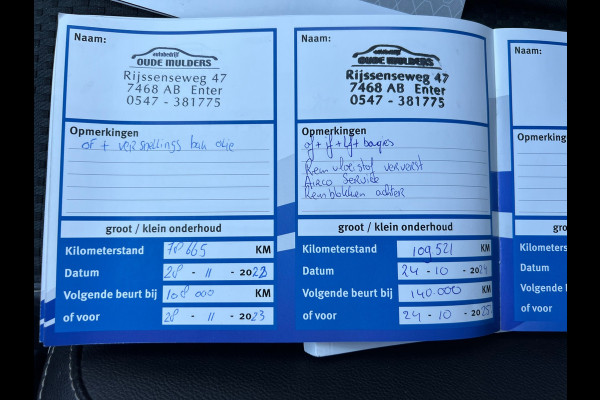 Naam:
autobedrijf
OUDE MULDERS
Rijssenseweg 47
7468 AB Enter
0547 - 381775
Opmerkingen
of + versnellings bak olie
groot / klein onderhoud
Kilometerstand 78665 KM
Datum 28 - 11 - 2022
Volgende beurt bij 108 000 KM
of voor 28 - 11 - 2023
Naam:
autobedrijf
OUDE MULDERS
Rijssenseweg 47
7468 AB Enter
0547 - 381775
Opmerkingen
of + if + Lf + bougies
Rem vloeistof ververst
Airco Service
Remblokken achter
groot / klein onderhoud
Kilometerstand 109521 KM
Datum 24 - 10 - 2024
Volgende beurt bij 140.000 KM
of voor 24 - 10 - 2025
Naam:
Opmerking
g
Kilometers
Datum
Volgende b
of voor